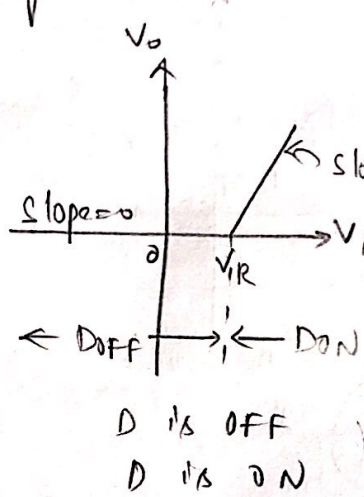 Vo
Slo
Slope=0
Vi
0
VIR
← DOFF → ← DON
D is OFF
D is ON